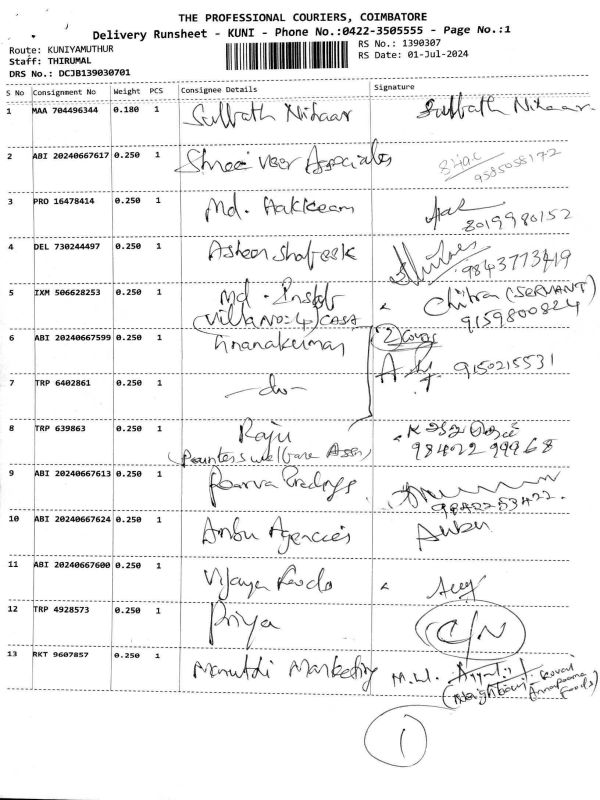 THE PROFESSIONAL COURIERS, COIMBATORE
Delivery Runsheet - KUNI - Phone No.:0422-3505555 - Page No.:1
Route: KUNIYAMUTHUR
Staff: THIRUMAL
DRS No.: DCJB139030701
RS No.: 1390307
RS Date: 01-Jul-2024
S No Consignment No Weight PCS Consignee Details Signature
1 MAA 704496344 0.180 1 Sulbath Nihaar Sulbath Nihaar
2 ABI 20240667617 0.250 1 Shree Veer Associates
9585058172
3 PRO 16478414 0.250 1 Md. Hakkeem
8019980152
4 DEL 730244497 0.250 1
9843773419
5 IXM 506628253 0.250 1 Md. Chitra (SERVANT)
Villa No: 4, CASA 9159800824
6 ABI 20240667599 0.250 1 Gnanakumar 2
9150215531
7 TRP 6402861 0.250 1 -do-
8 TRP 639863 0.250 1 Raju
(Painters welfare Assn) 98422 99968
9 ABI 20240667613 0.250 1
9842253422.
10 ABI 20240667624 0.250 1 Anbu Agencies Anbu
11 ABI 20240667600 0.250 1 Vijaya
12 TRP 4928573 0.250 1 Priya C/N
13 RKT 9607857 0.250 1 Maruthi Marketing
Kovai
Annapoorna
foods)
1